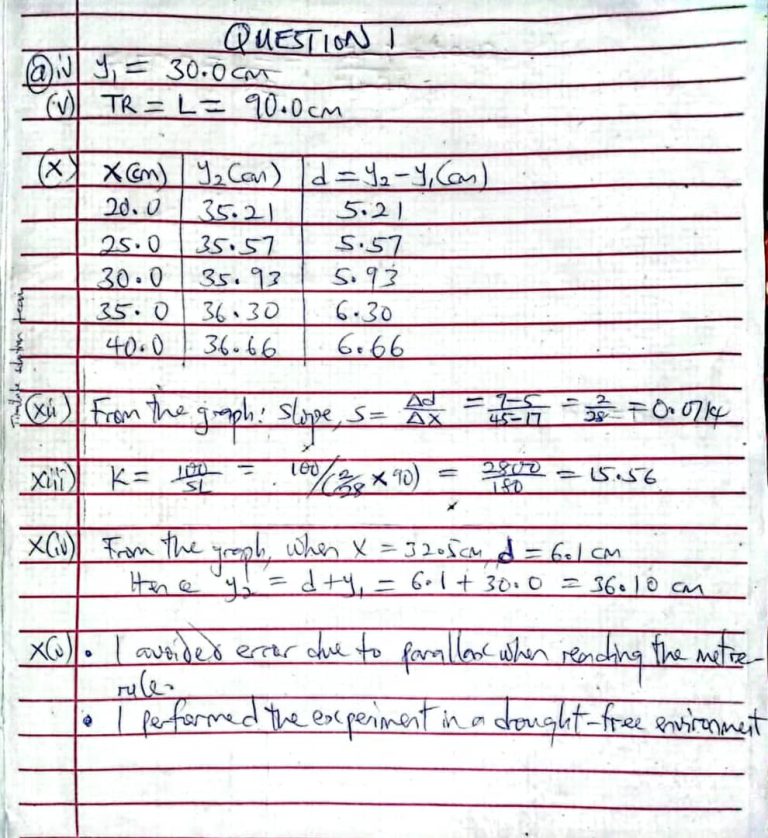 QUESTION 1
(a) iv) y₁ = 30.0cm
(v) TR = L = 90.0cm
(x) X(cm) y₂(cm) d = y₂ - y₁(cm)
20.0 35.21 5.21
25.0 35.57 5.57
30.0 35.93 5.93
35.0 36.30 6.30
40.0 36.66 6.66
(xii) From the graph: Slope, S = Δd/ΔX = 7-5/45-17 = 2/28 = 0.0714
xiii) K = 100/SL = 100/(2/28 x 90) = 2800/180 = 15.56
x(iv) From the graph, when X = 32.5cm, d = 6.1 cm
Hence y₂ = d+y₁ = 6.1 + 30.0 = 36.10 cm
x(v) • I avoided error due to parallax when reading the metre-
rule.
• I performed the experiment in a drought-free environment